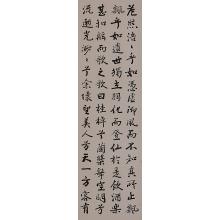 茫然浩〻乎如憑虛御風而不知其所止飄
飄乎如遺世獨立羽化而登仙於是飲酒樂
甚扣舷而歌之歌曰桂棹兮蘭槳擊空明兮
流光渺〻兮余懷望美人兮天一方客有